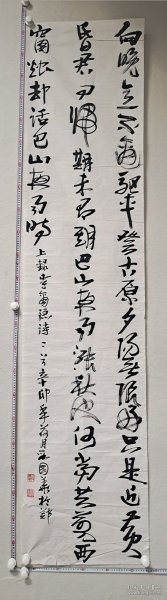 向晚意不適驅車登古原夕陽無限好只是近黄
昏君問歸期未有期巴山夜雨漲秋池何當共剪西
窗燭却話巴山夜雨時 上録李商隱詩 辛卯年荷月